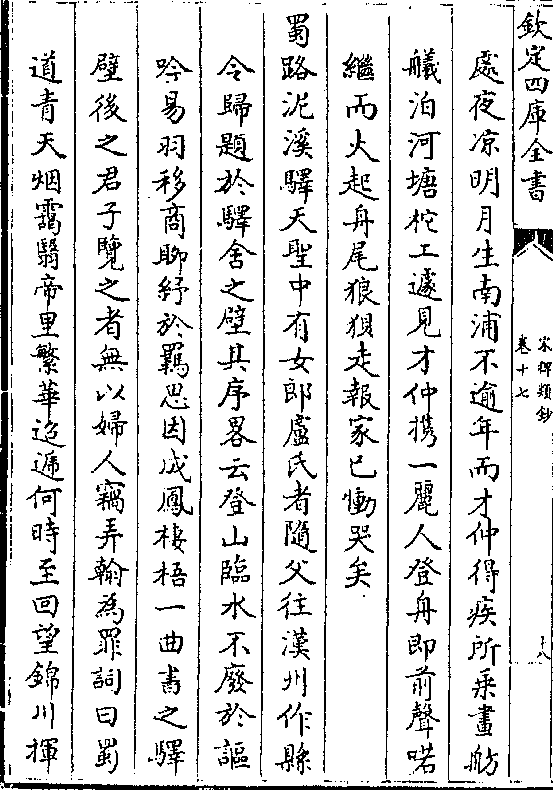 欽定四庫全書
宋稗類鈔
卷十七
十八
處夜凉明月生南浦不逾年而才仲得疾所乗畫舫
艤泊河塘柁工遽見才仲携一麗人登舟即前聲喏
繼而火起舟尾狼狽走報家已慟哭矣
蜀路泥溪驛天聖中有女郎盧氏者隨父往漢州作縣
令歸題於驛舍之壁其序畧云登山臨水不廢於謳
吟易羽移商聊紓於羈思因成鳳棲梧一曲書之驛
壁後之君子覽之者無以婦人竊弄翰為罪詞曰蜀
道青天烟靄翳帝里繁華迢遞何時至回望錦川揮